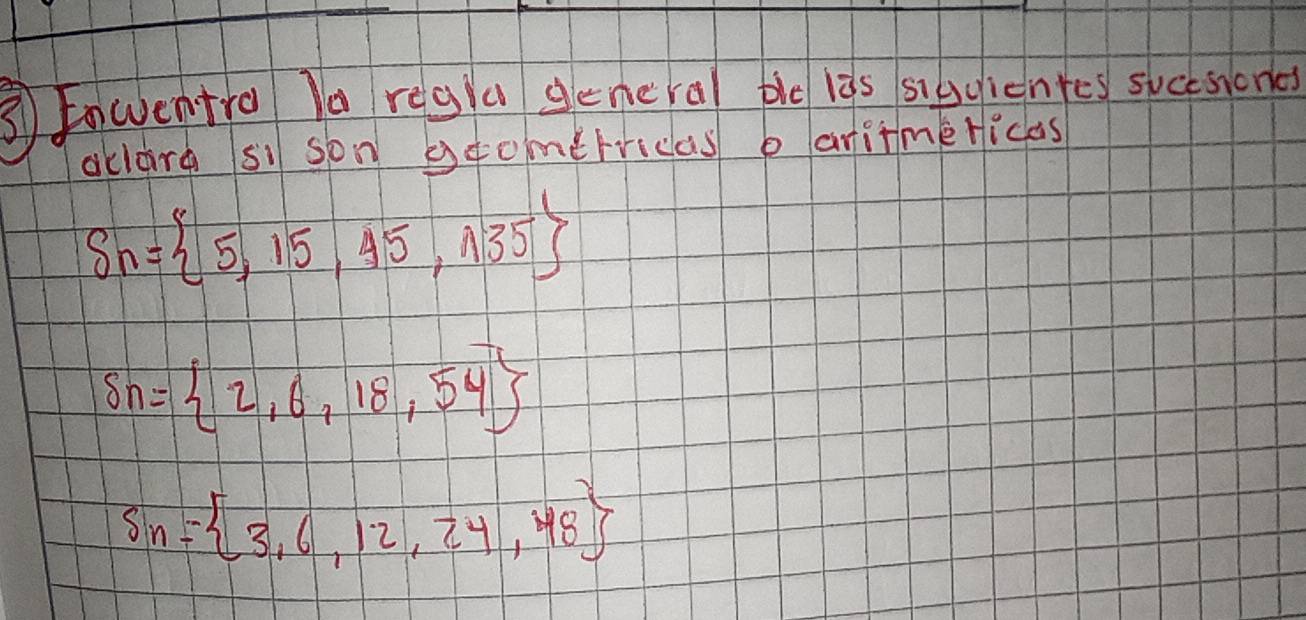 3) Encuentra la regla general de las siguientes sucesiones
aclara si son geométricas o aritméticas
Sn={5, 15, 45, 135}
Sn={2, 6, 18, 54}
Sn={3, 6, 12, 24, 48}